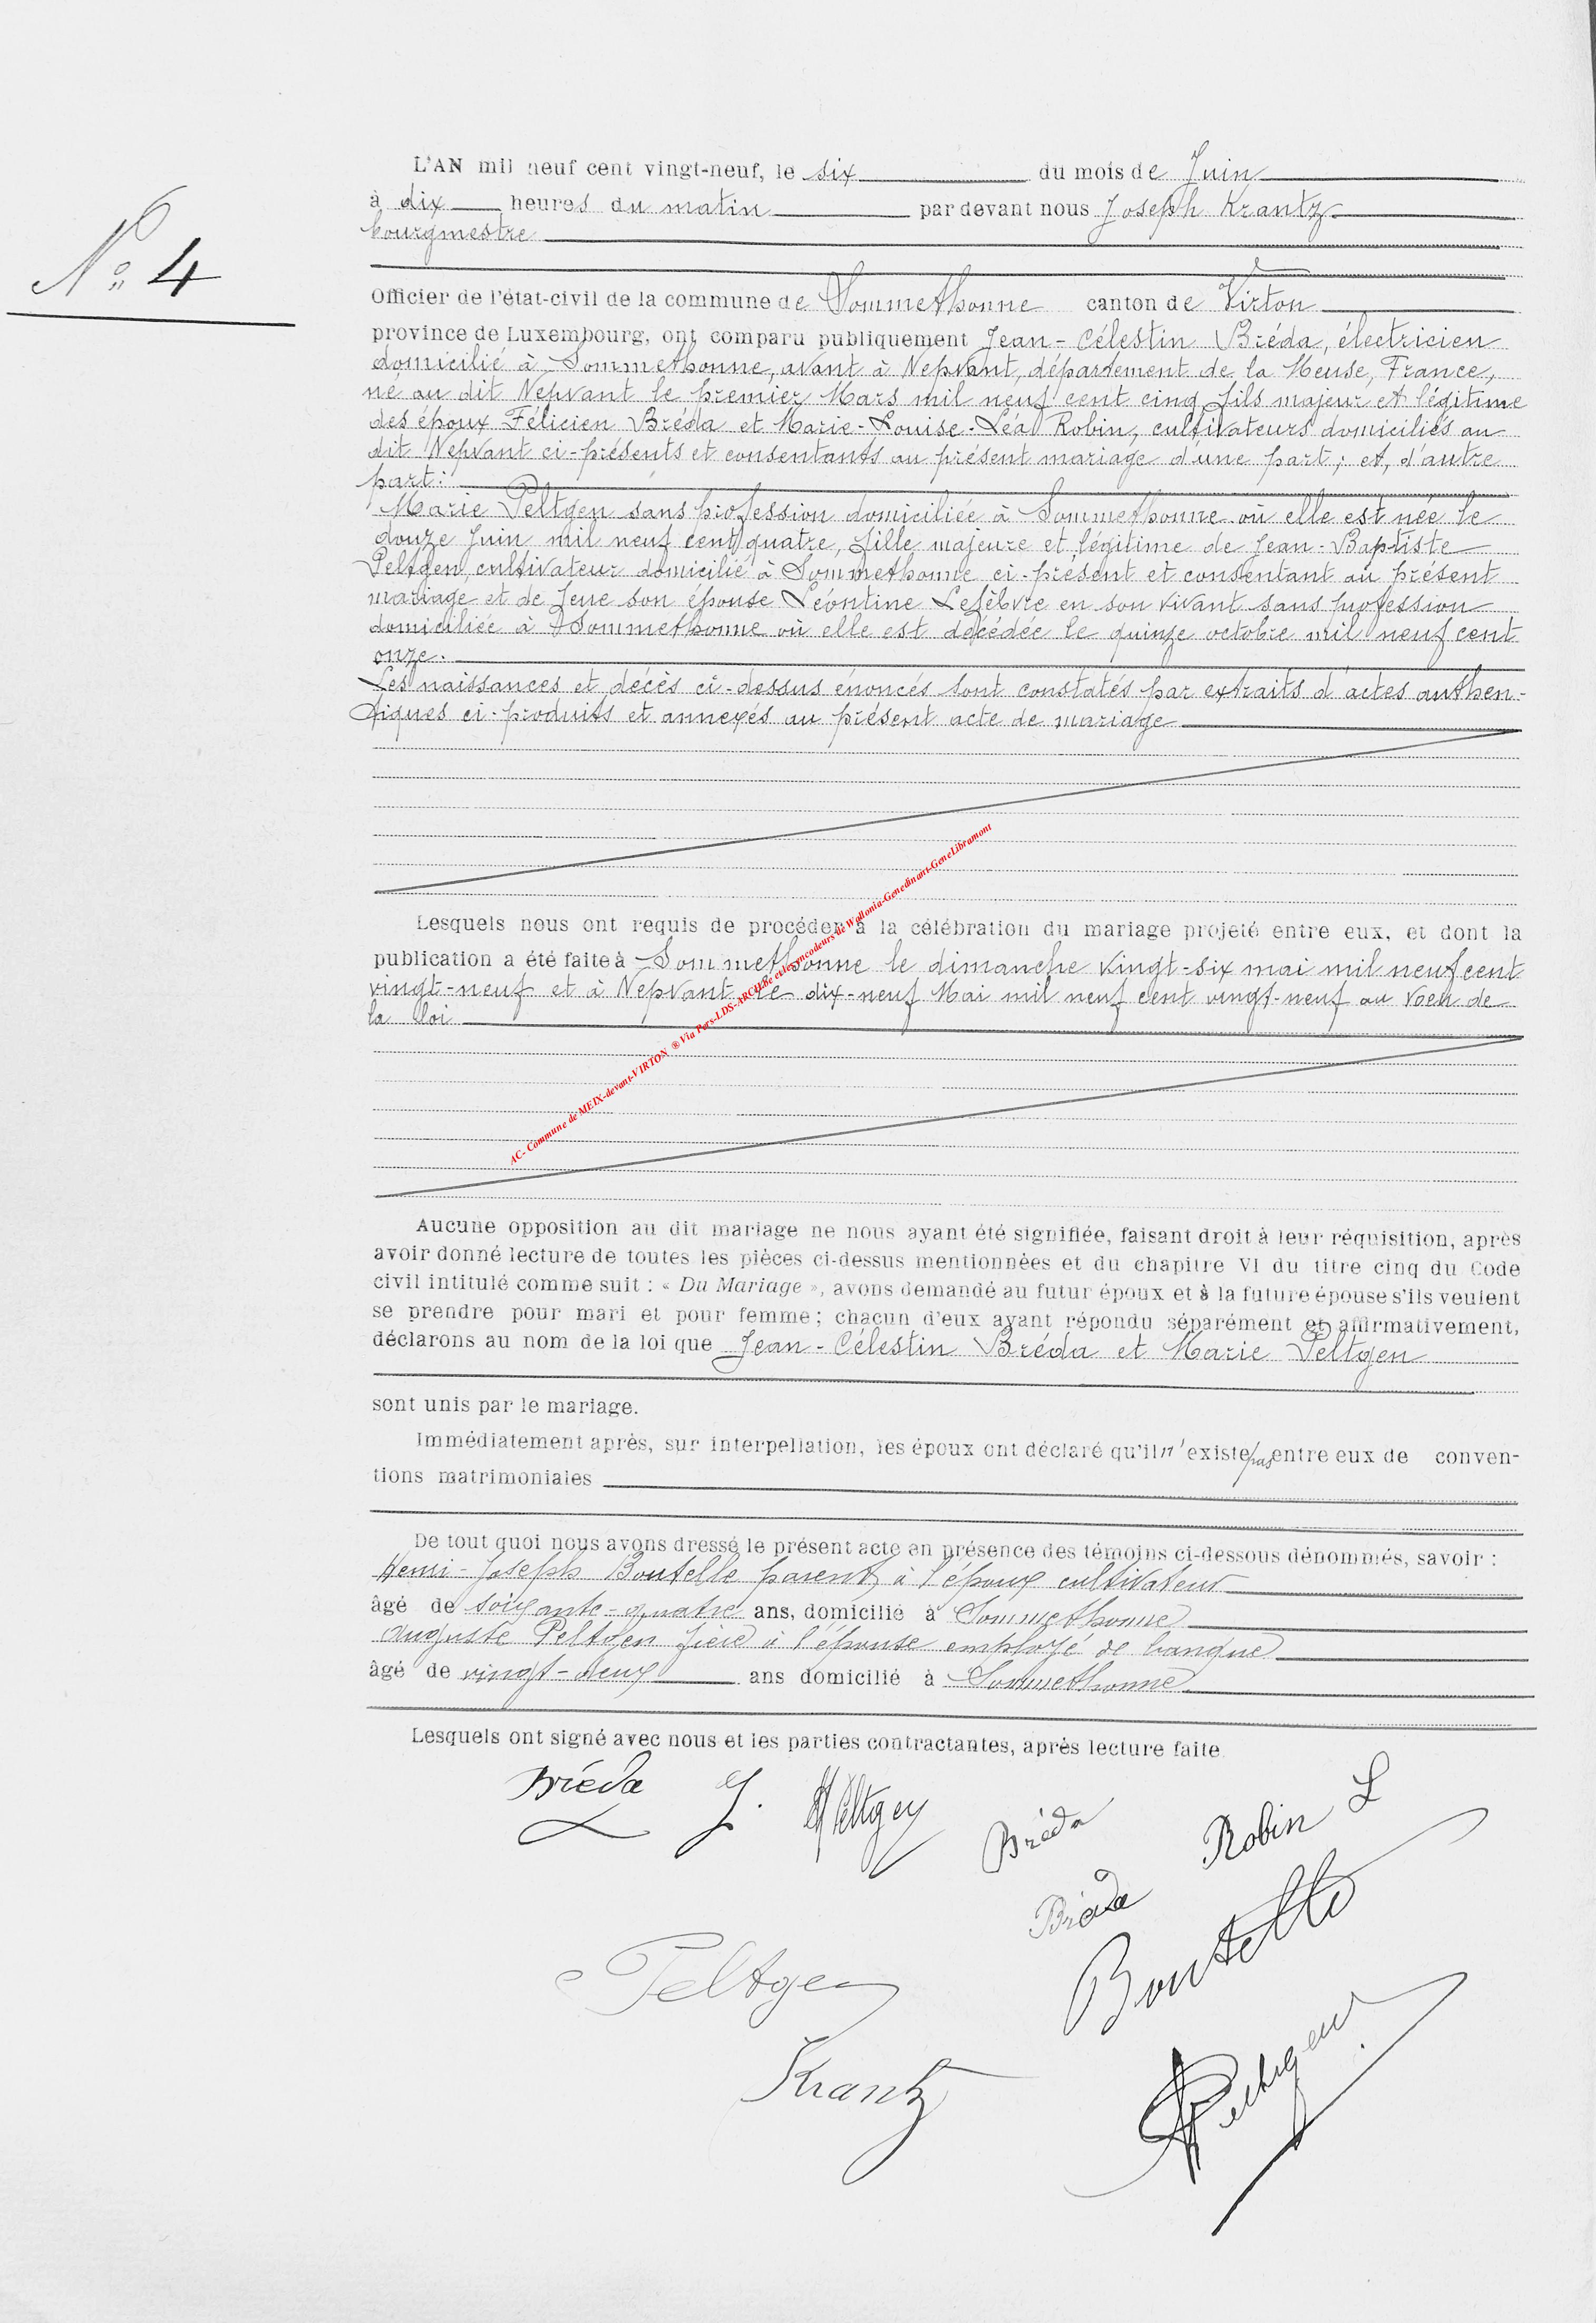 L'AN mil neuf cent vingt-neuf, le six du mois de Juin
à dix heures du matin par devant nous Joseph Krantz
bourgmestre
N° 4
Officier de l'état-civil de la commune de Sommethonne canton de Virton
province de Luxembourg, ont comparu publiquement Jean-Célestin Bréda, électricien
domicilié à Sommethonne, avant à Nepvant, département de la Meuse, France,
né au dit Nepvant le premier Mars mil neuf cent cinq, fils majeur et légitime
des époux Félicien Bréda et Marie-Louise-Léa Robin, cultivateurs domiciliés au
dit Nepvant ci-présents et consentants au présent mariage d'une part; et, d'autre
part:
Marie Peltgen sans profession domiciliée à Sommethonne où elle est née le
douze Juin mil neuf cent quatre, fille majeure et légitime de Jean-Baptiste
Peltgen, cultivateur domicilié à Sommethonne ci-présent et consentant au présent
mariage et de feue son épouse Léontine Lefèbvre en son vivant sans profession
domiciliée à Sommethonne où elle est décédée le quinze octobre mil neuf cent
onze.
Les naissances et décès ci-dessus énoncés sont constatés par extraits d'actes authen-
tiques ci-produits et annexés au présent acte de mariage
Lesquels nous ont requis de procéder à la célébration du mariage projeté entre eux, et dont la
publication a été faite à Sommethonne le dimanche vingt-six mai mil neuf cent
vingt-neuf et à Nepvant le dix-neuf Mai mil neuf cent vingt-neuf au voeu de
la loi
AC- Commune de MEIX-devant-VIRTON ® Via Pers-LDS-ARCH.be et les encodeurs de Wallonia-Genedinant-GeneLibramont
Aucune opposition au dit mariage ne nous ayant été signifiée, faisant droit à leur réquisition, après
avoir donné lecture de toutes les pièces ci-dessus mentionnées et du chapitre VI du titre cinq du Code
civil intitulé comme suit : « Du Mariage », avons demandé au futur époux et à la future épouse s'ils veulent
se prendre pour mari et pour femme; chacun d'eux ayant répondu séparément et affirmativement,
déclarons au nom de la loi que Jean-Célestin Bréda et Marie Peltgen
sont unis par le mariage.
Immédiatement après, sur interpellation, les époux ont déclaré qu'il n'existe pas entre eux de conven-
tions matrimoniales
De tout quoi nous avons dressé le présent acte en présence des témoins ci-dessous dénommés, savoir :
Henri-Joseph Boutelle parent à l'époux cultivateur
âgé de soixante-quatre ans, domicilié à Sommethonne
Auguste Peltgen frère à l'épouse employé de banque
âgé de vingt-deux ans domicilié à Sommethonne
Lesquels ont signé avec nous et les parties contractantes, après lecture faite
Bréda J. M Peltgen
Bréda Robin L
Bréda
Boutelle
Peltgen
Krantz
A Peltgen